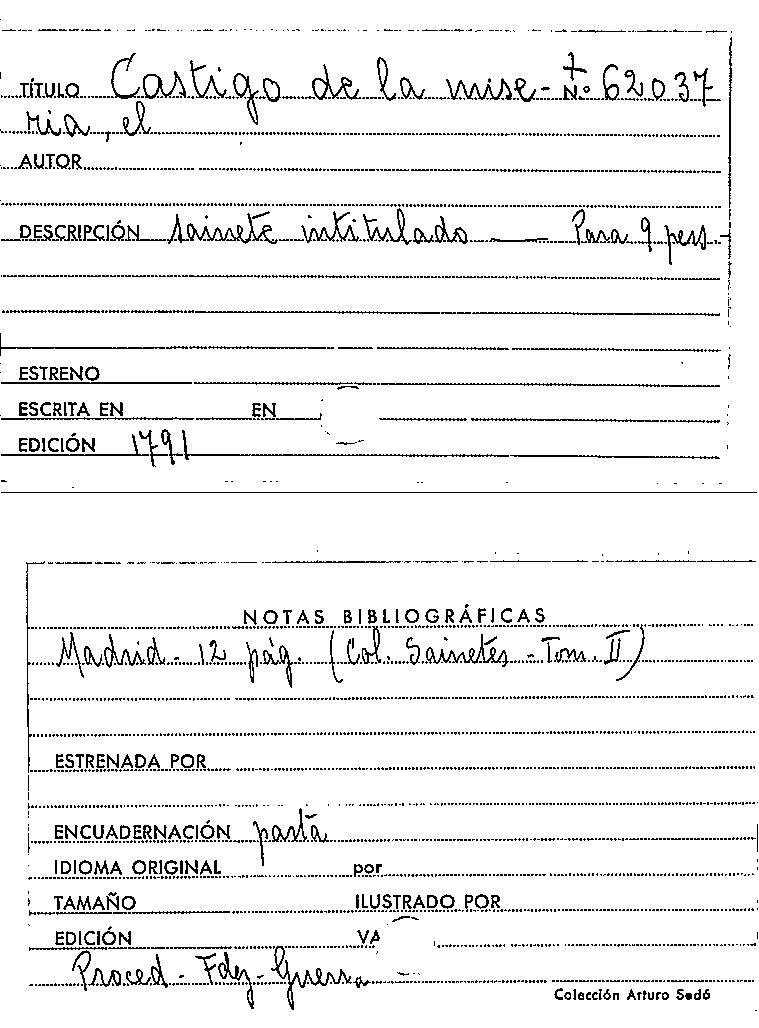 TÍTULO Castigo de la mise- N.º 62037
ria, el
AUTOR
DESCRIPCIÓN Sainete intitulado — Para 9 pers.-
ESTRENO
ESCRITA EN EN
EDICIÓN 1791
NOTAS BIBLIOGRÁFICAS
Madrid - 12 pág. (Col. Sainetes - Tom. II)
ESTRENADA POR
ENCUADERNACIÓN pasta
IDIOMA ORIGINAL por
TAMAÑO ILUSTRADO POR
EDICIÓN VA
Proced - Fdez - Guerra -
Colección Arturo Sedó